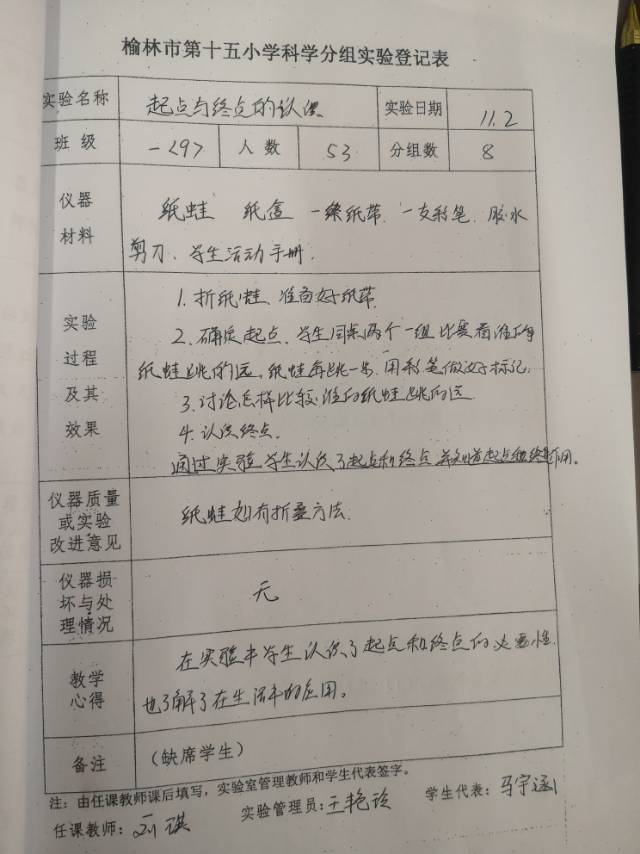 榆林市第十五小学科学分组实验登记表
实验名称 起点与终点的认识 实验日期 11.2
班级 一<9> 人数 53 分组数 8
仪器材料 纸蛙 纸盒 一条纸带 一支彩笔 胶水
剪刀、学生活动手册.
实验过程及其效果 1.折纸蛙、准备好纸带
2.确定起点、学生同桌两个一组比赛看谁的
纸蛙跳的远,纸蛙每跳一步,用彩笔做好标记,
3.讨论怎样比较谁的纸蛙跳的远
4.认识终点.
通过实验学生认识了起点和终点 并知道起点和终作用。
仪器质量或实验改进意见 纸蛙如有折叠方法.
仪器损坏与处理情况 无
教学心得 在实验中学生认识了起点和终点的必要性.
也了解了在生活中的应用。
备注 (缺席学生)
注:由任课教师课后填写,实验室管理教师和学生代表签字。
任课教师: 刘琪 实验管理员:王艳玲 学生代表:马宇涵